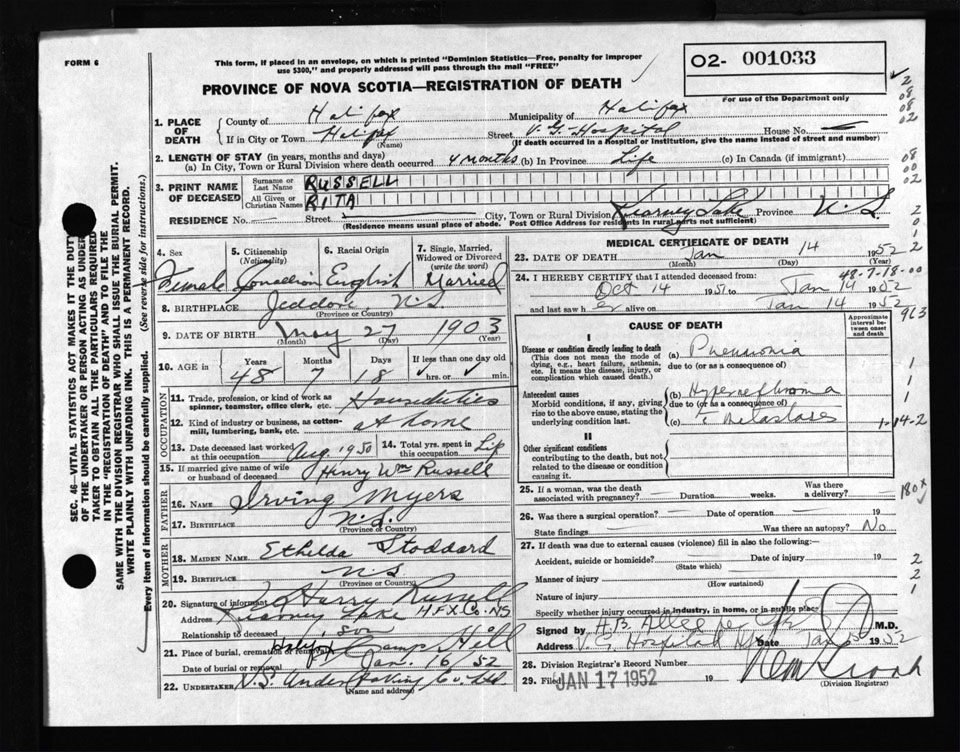 FORM 6
This form, if placed in an envelope, on which is printed "Dominion Statistics—Free, penalty for improper
use $300," and properly addressed will pass through the mail "FREE"
O2- 001033
For use of the Department only
PROVINCE OF NOVA SCOTIA—REGISTRATION OF DEATH
1. PLACE OF DEATH
County of Halifax Municipality of Halifax
If in City or Town Halifax Street V. G. Hospital House No.
(Name) (If death occurred in a Hospital or Institution, give the name instead of street and number)
2. LENGTH OF STAY (in years, months and days)
(a) In City, Town or Rural Division where death occurred 4 months (b) In Province Life (c) In Canada (if immigrant)
3. PRINT NAME OF DECEASED
Surname or Last Name RUSSELL
All Given or Christian Names RITA
RESIDENCE No. Street City, Town or Rural Division Kearney Lake Province N.S
(Residence means usual place of abode. Post Office Address for residents in rural parts not sufficient)
SEC. 46—VITAL STATISTICS ACT MAKES IT THE DUTY
OF THE UNDERTAKER OR PERSON ACTING AS UNDER-
TAKER TO OBTAIN ALL THE PARTICULARS REQUIRED
IN THE "REGISTRATION OF DEATH" AND TO FILE THE
SAME WITH THE DIVISION REGISTRAR WHO SHALL ISSUE THE BURIAL PERMIT.
WRITE PLAINLY WITH UNFADING INK. THIS IS A PERMANENT RECORD.
Every item of information should be carefully supplied. (See reverse side for instructions.)
4. Sex Female
5. Citizenship (Nationality) Canadian
6. Racial Origin English
7. Single, Married, Widowed or Divorced (write the word) Married
8. BIRTHPLACE Jeddore N.S
(Province or Country)
9. DATE OF BIRTH May 27 1903
(Month) (Day) (Year)
10. AGE in Years 48 Months 7 Days 18 If less than one day old hrs. or min.
OCCUPATION
11. Trade, profession, or kind of work as spinner, teamster, office clerk, etc. Houseduties
12. Kind of industry or business, as cotton-mill, lumbering, bank, etc. at home
13. Date deceased last worked at this occupation Aug 1950 14. Total yrs. spent in this occupation Life
15. If married give name of wife or husband of deceased Henry Wm Russell
FATHER
16. NAME Irving Myers
17. BIRTHPLACE N.S.
(Province or Country)
MOTHER
18. MAIDEN NAME Ethilda Stoddard
19. BIRTHPLACE N.S
(Province or Country)
20. Signature of informant Harry Russell
Address Kearney Lake HFX Co. NS
Relationship to deceased son
21. Place of burial, cremation or removal Halifax Camp Hill
Date of burial or removal Jan. 16/52
22. UNDERTAKER N.S. Undertaking Co. Ltd
(Name and address)
MEDICAL CERTIFICATE OF DEATH
23. DATE OF DEATH Jan 14 1952
(Month) (Day) (Year)
48-7-18-00
24. I HEREBY CERTIFY that I attended deceased from:
Oct 14 1951 to Jan 14 1952
and last saw her alive on Jan 14 1952
CAUSE OF DEATH
Approximate interval between onset and death
I
Disease or condition directly leading to death (a) Pneumonia
(This does not mean the mode of dying, e.g., heart failure, asthenia, etc. It means the disease, injury, or complication which caused death.)
due to (or as a consequence of)
Antecedent causes (b) Hypernephroma
Morbid conditions, if any, giving rise to the above cause, stating the underlying condition last.
due to (or as a consequence of)
(c) metastases
II
Other significant conditions
contributing to the death, but not related to the disease or condition causing it.
25. If a woman, was the death associated with pregnancy? Duration weeks. Was there a delivery?
26. Was there a surgical operation? Date of operation 19
State findings Was there an autopsy? No
27. If death was due to external causes (violence) fill in also the following:
Accident, suicide or homicide? Date of injury 19
(State which)
Manner of injury
(How sustained)
Nature of injury
Specify whether injury occurred in industry, in home, or in public place
Signed by H.B. Allen per M.D.
Address V. G. Hospital Date Jan 1952
28. Division Registrar's Record Number
29. Filed JAN 17 1952 19
(Division Registrar)